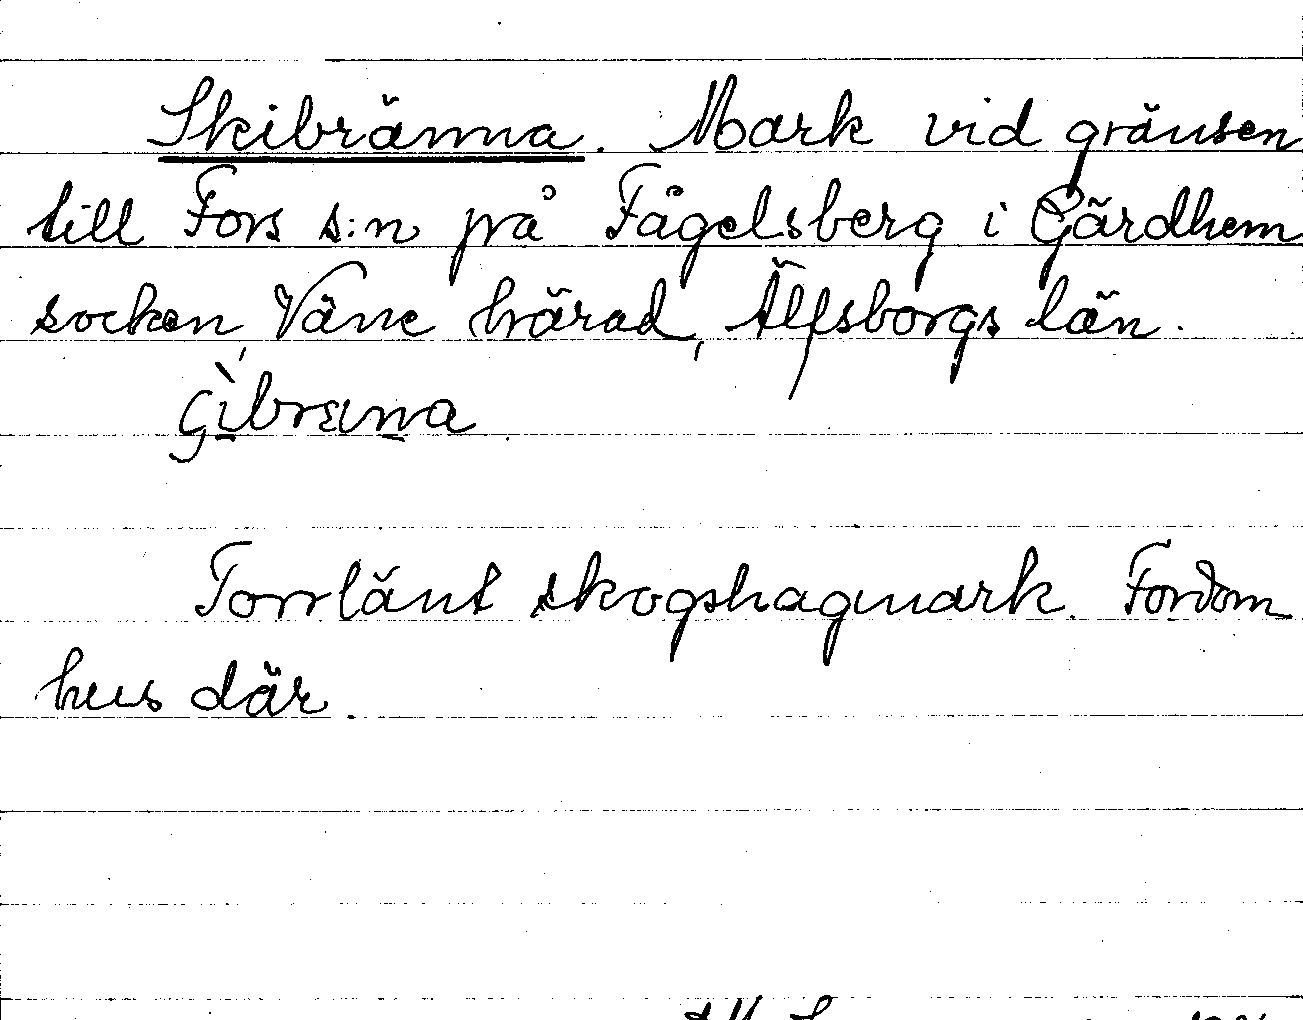 Skibränna. Mark vid gränsen
till Fors s:n på Fågelsberg i Gärdhem
socken, Väne härad, Älfsborgs län.
Torrlänt skogshagmark. Fordom
hus där.